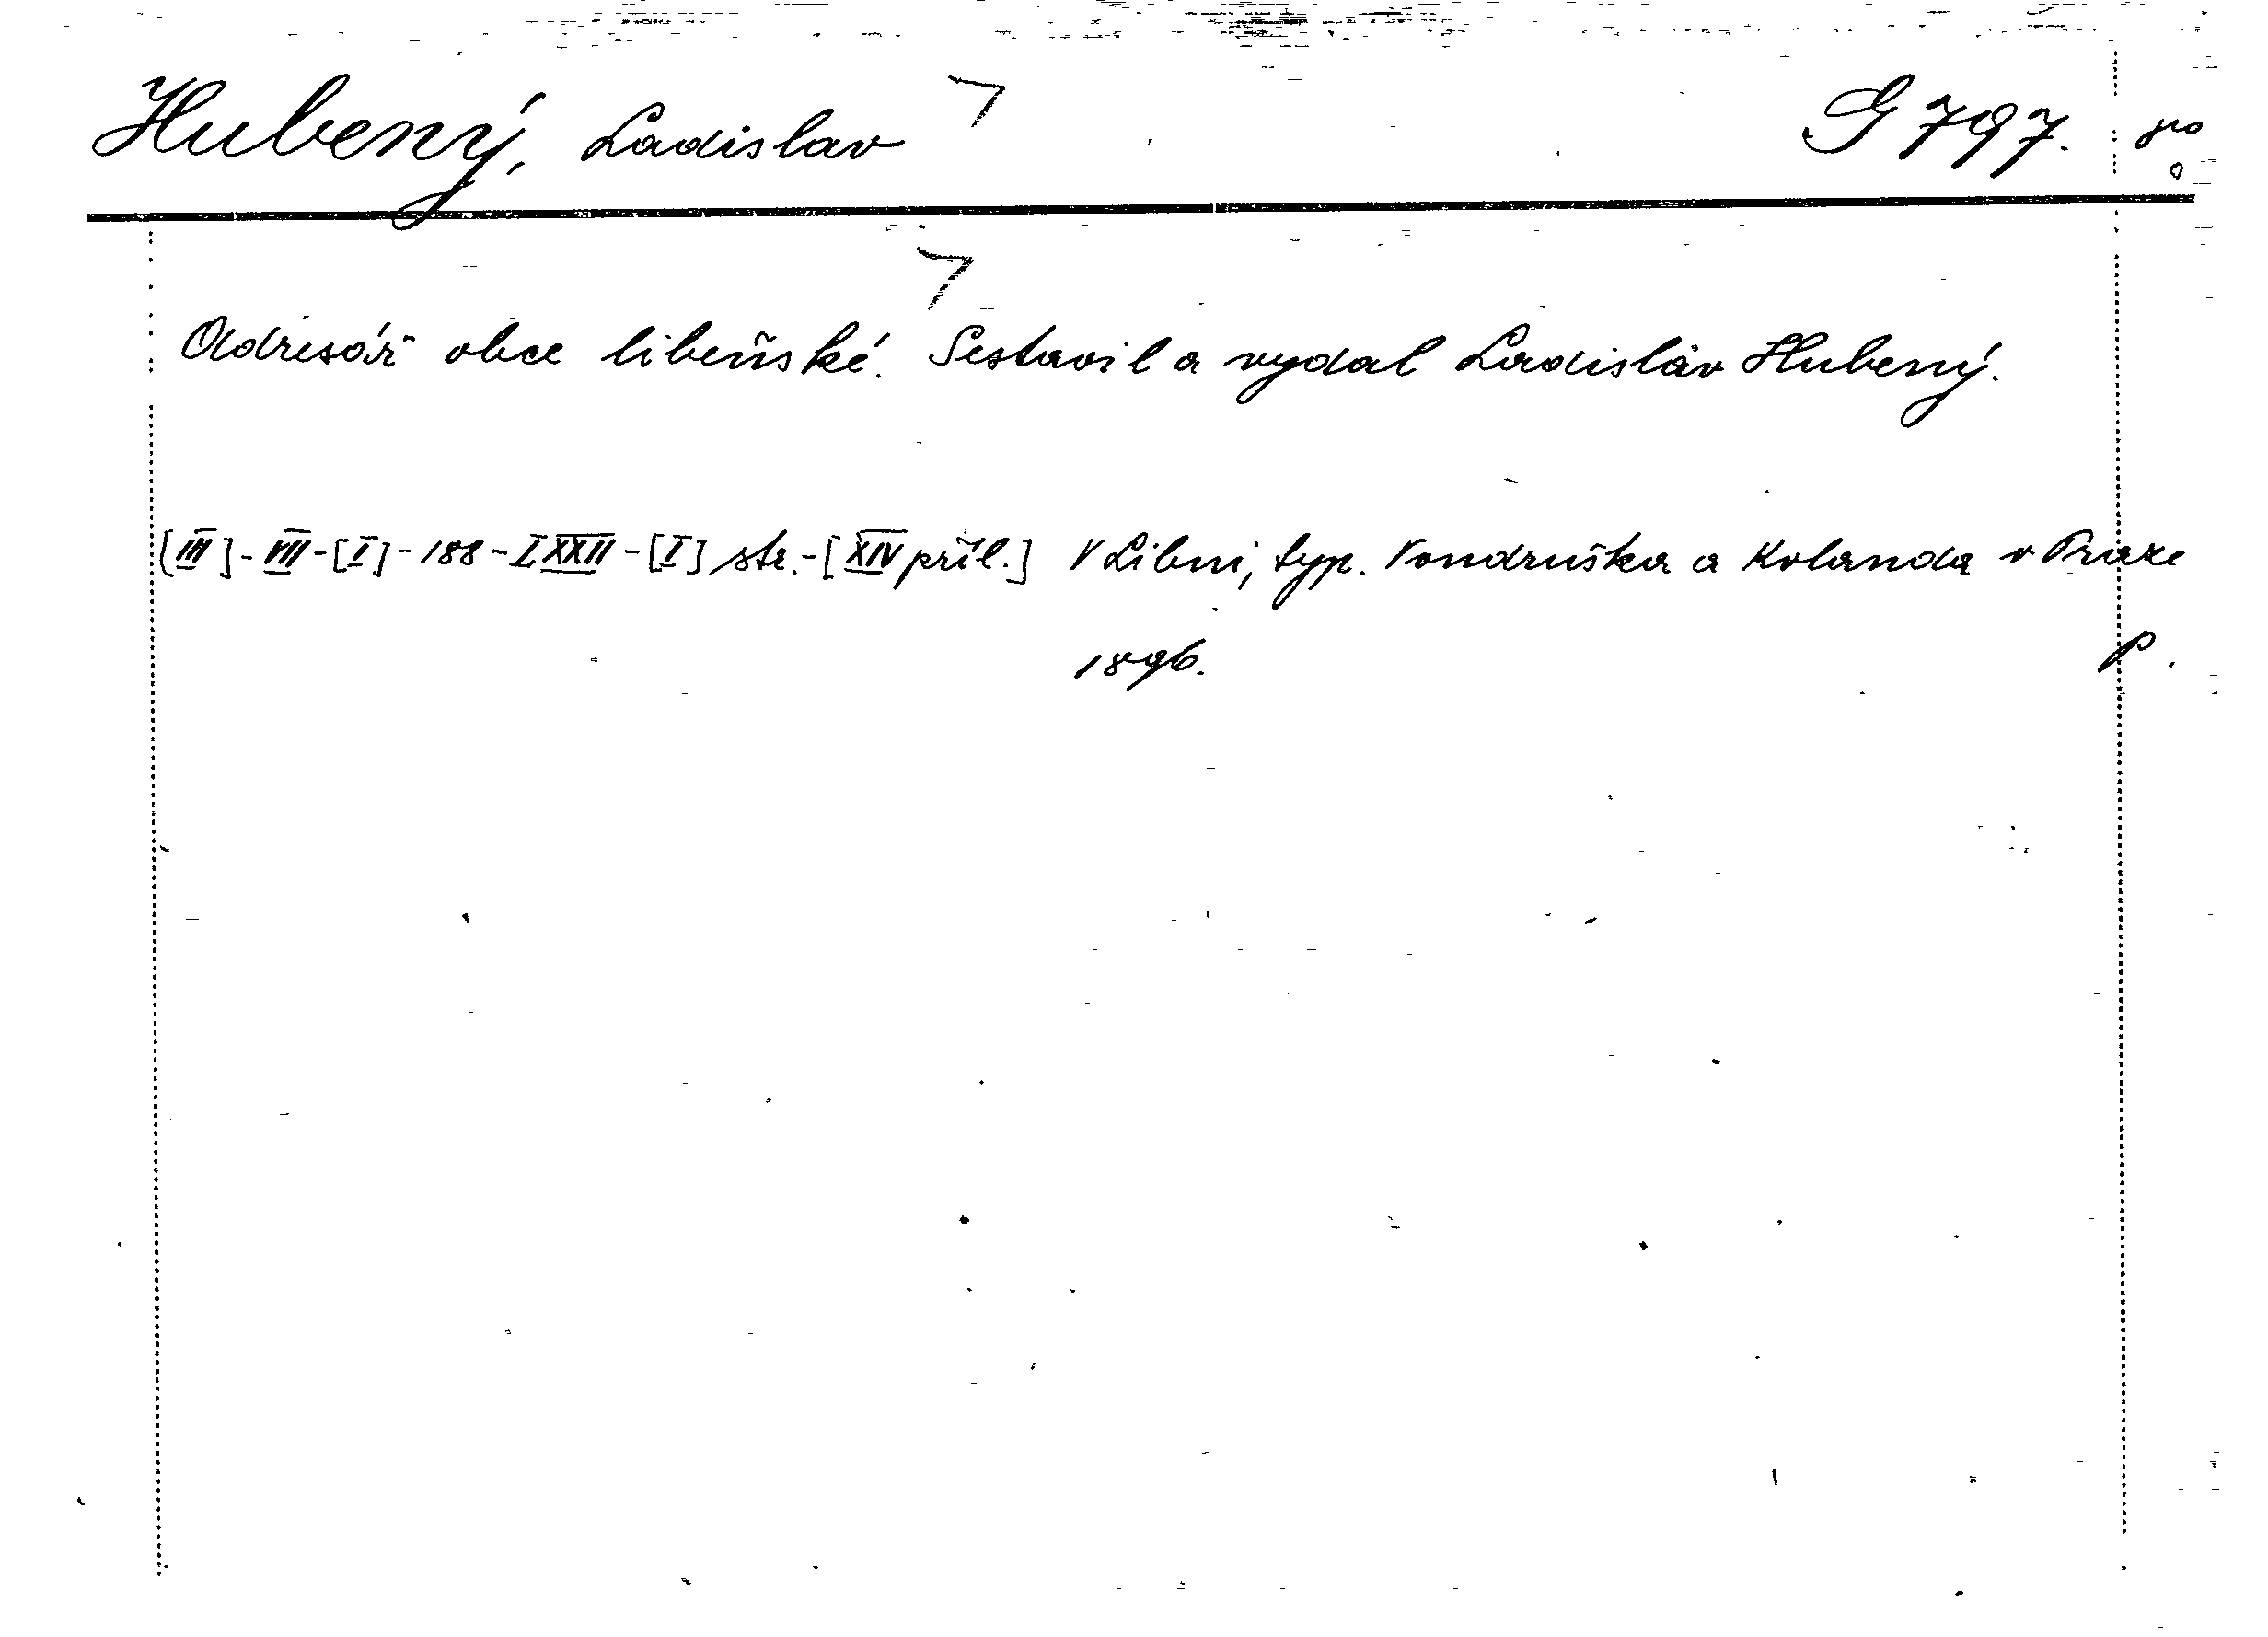 Hubený, Ladislav G 797.
Adresář obce libeňské. Sestavil a vydal Ladislav Hubený.
[III]-VII-[I]-188-LXXII-[I] str.-[XIV příl.] V Libni, typ. Vondruška a Kolanda v Praze
1896. P.